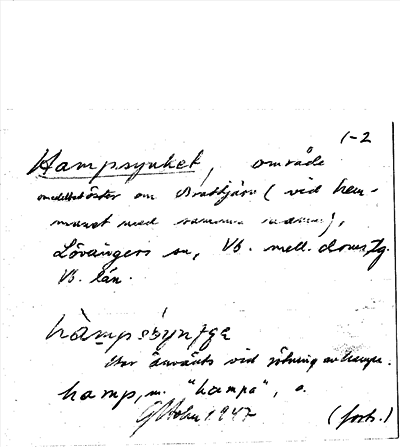 1-2
Hampsynket, område
omedelbart öster om Bradtjärn (vid hem-
manet med samma namn),
Lövångers sn, Vb. mell. doms. tg.
Vb. län.
hampsýnₜgə
Har använts vid rötning av hampa.
hamp, m. "hampa", o.
1947 (forts.)